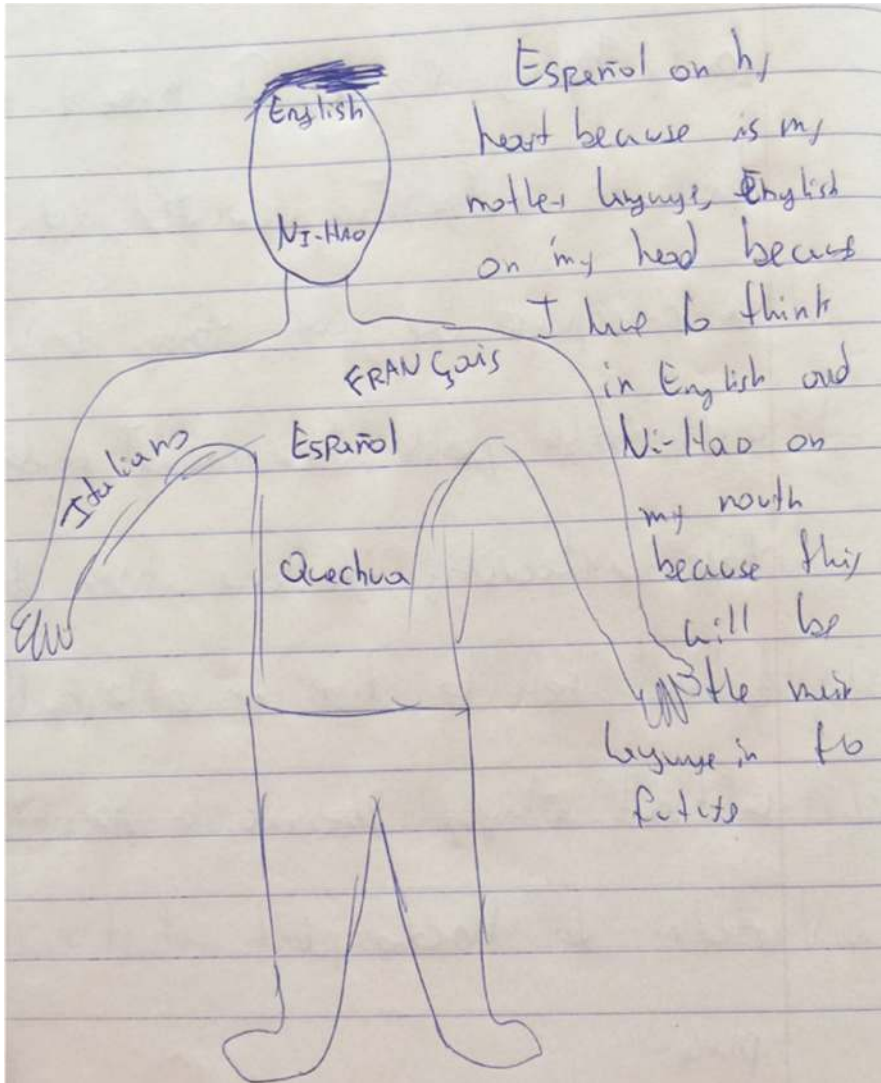 English
NI-HAO
FRANÇais
Italiano
Español
Quechua
Español on my
heart because is my
mother languge, English
on my head becaus
I have to think
in English and
Ni-Hao on
my mouth
because this
will be
the main
languge in